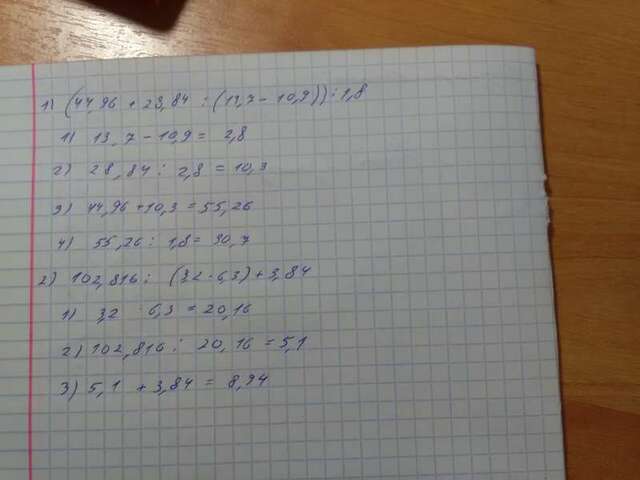 1) (44,96 + 28,84 : (13,7 - 10,9)) : 1,8
1) 13,7 - 10,9 = 2,8
2) 28,84 : 2,8 = 10,3
3) 44,96 + 10,3 = 55,26
4) 55,26 : 1,8 = 30,7
2) 102,816 : (3,2 · 6,3) + 3,84
1) 3,2 · 6,3 = 20,16
2) 102,816 : 20,16 = 5,1
3) 5,1 + 3,84 = 8,94